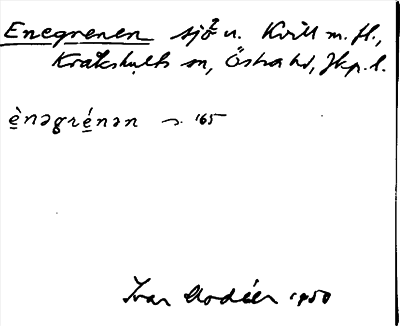 Enegrenen sjö u. Kvill m. fl.,
Kråkshults sn, Östra hd, Jkp. l.
ènəgrénən 165
Ivar Modéer 1950